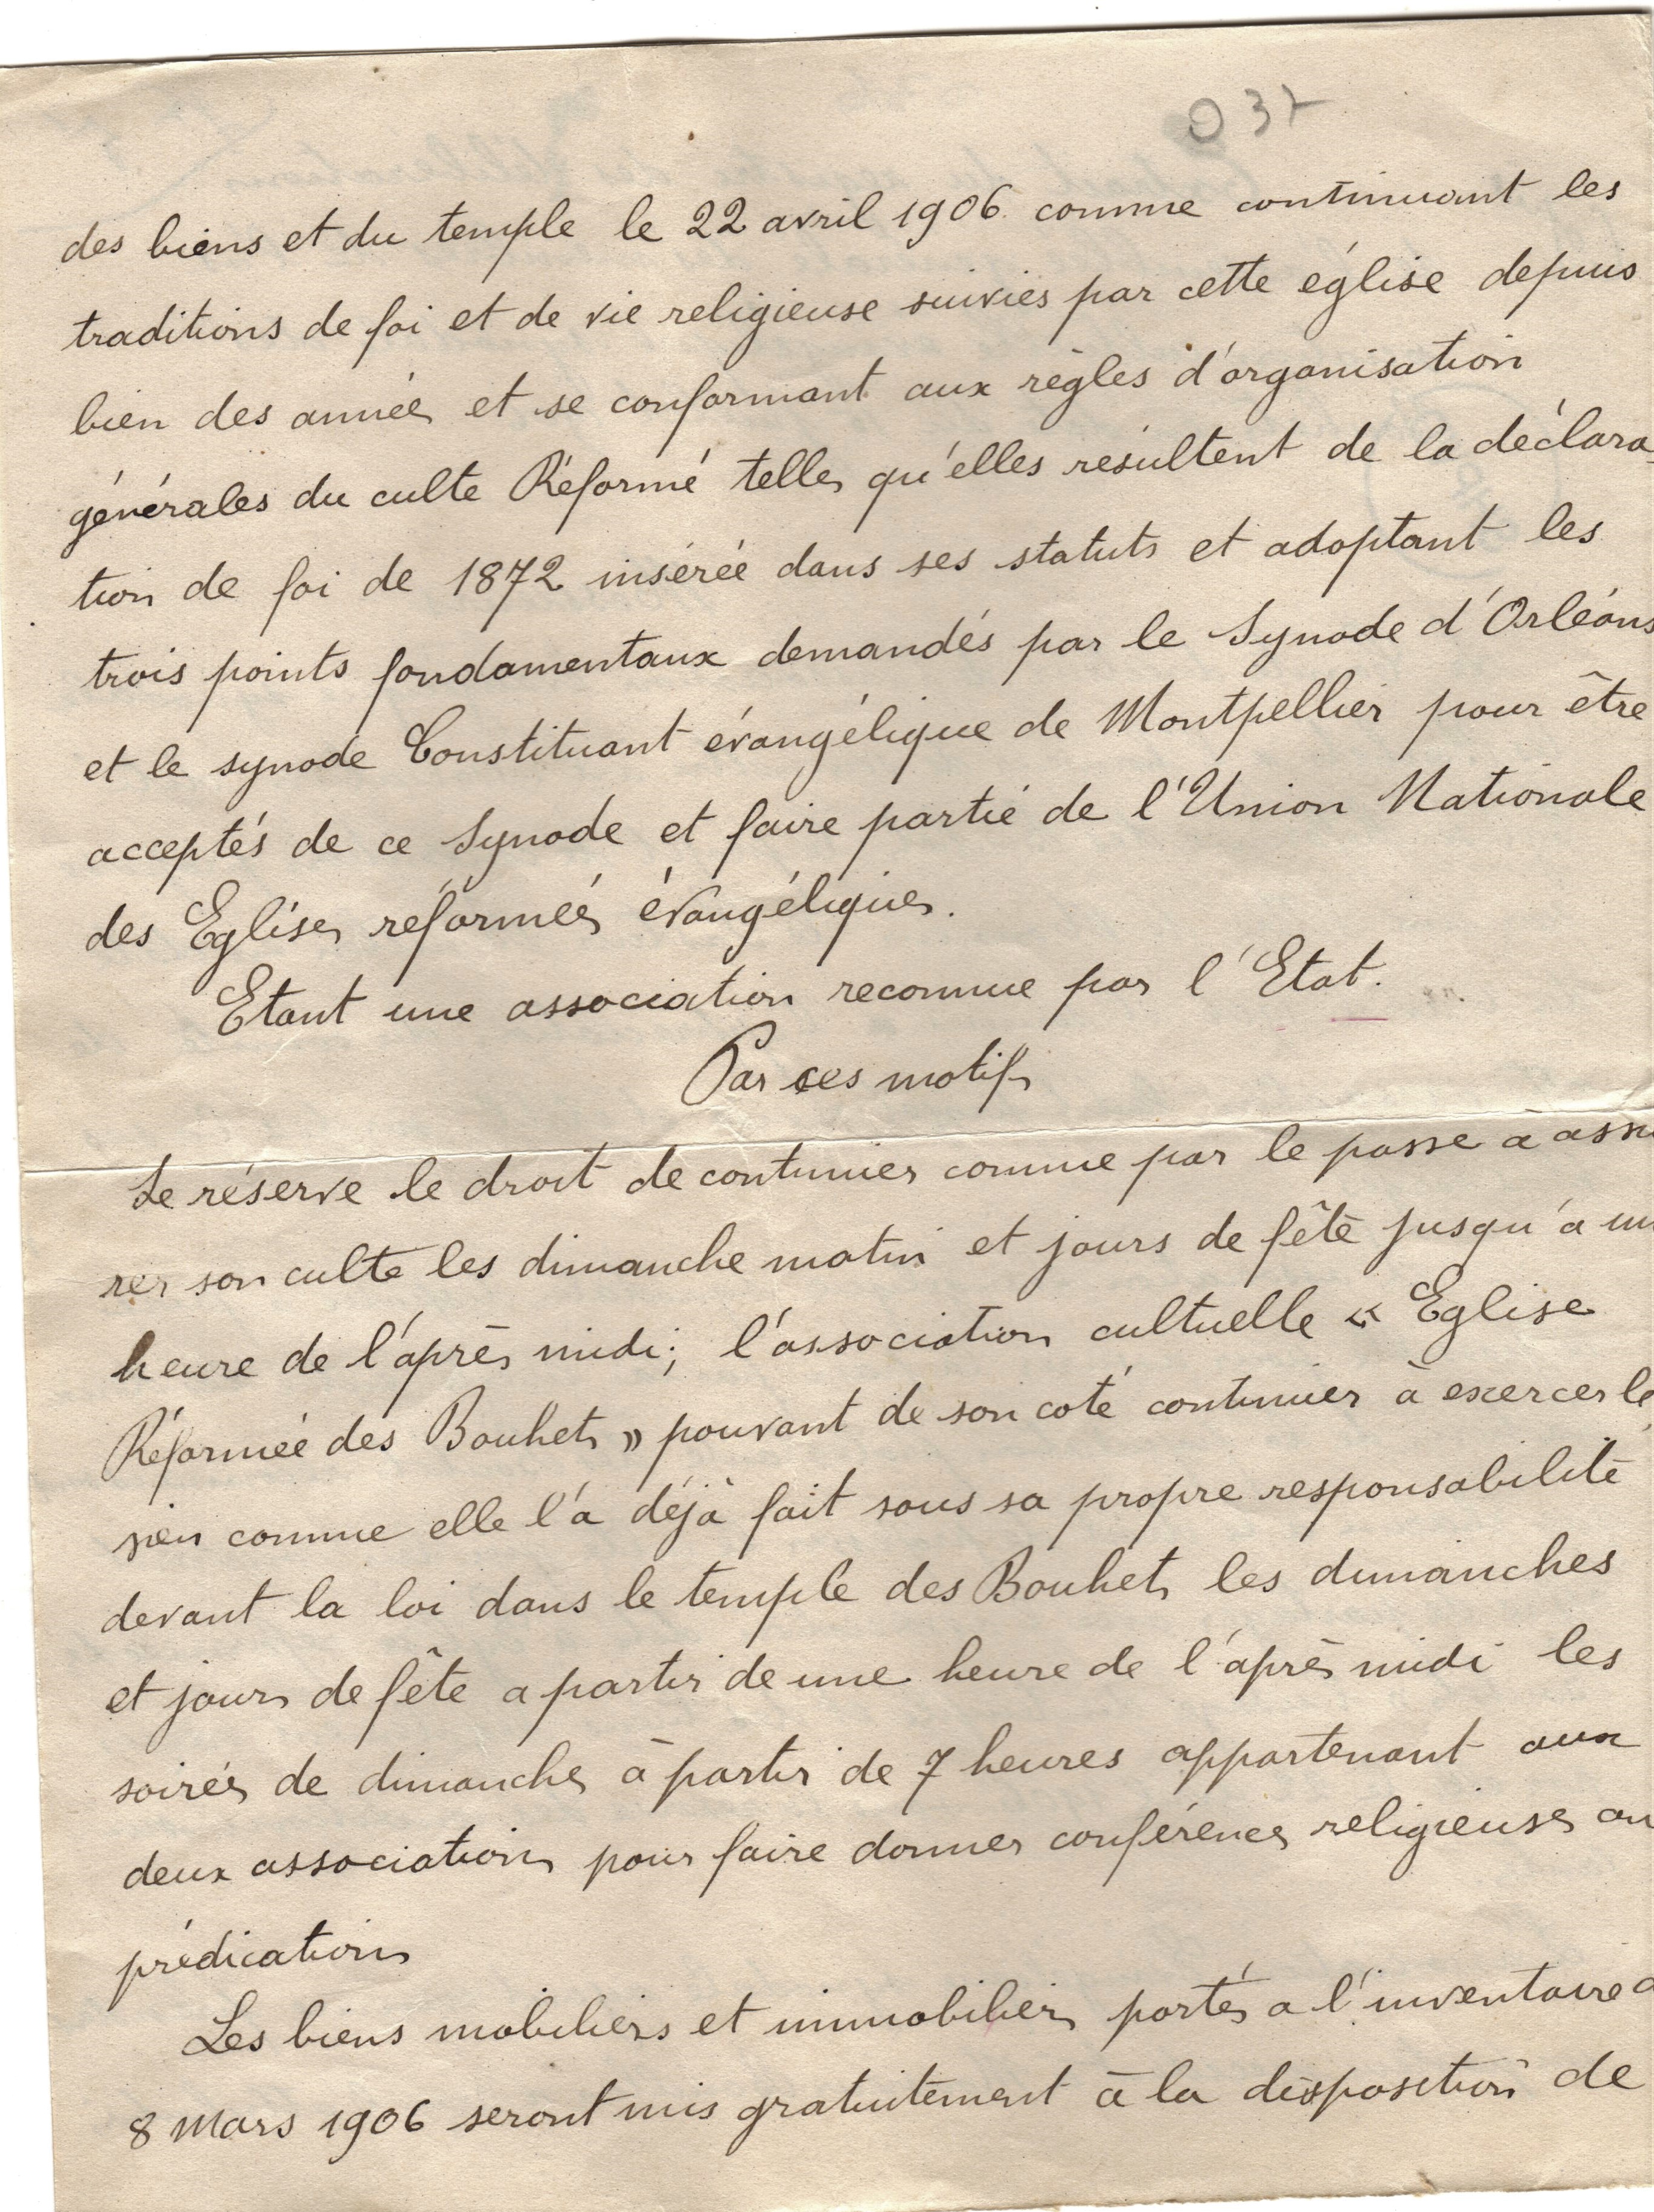 037
des biens et du temple le 22 avril 1906. comme continuant les
traditions de foi et de vie religieuse suivies par cette église depuis
bien des année et se conformant aux règles d'organisation
générales du culte Réformé telles qu'elles résultent de la déclara_
tion de foi de 1872 insérée dans ses statuts et adoptant les
trois points fondamentaux demandés par le Synode d'Orléans
et le synode Constituant évangélique de Montpellier pour être
acceptés de ce Synode et faire partie de l'Union Nationale
des Eglises réformées évangéliques.
Etant une association reconnue par l'Etat.
Par ces motifs
Se réserve le droit de continuer comme par le passe a assu
rer son culte les dimanche matin et jours de fête jusqu'a un
heure de l'après midi; l'association cultuelle « Eglise
Réformée des Bouhets » pouvant de son coté continuer à exercer le
sien comme elle l'a déjà fait sous sa propre responsabilité
devant la loi dans le temple des Bouhets les dimanches
et jours de fête a partir de une heure de l'après midi les
soirées de dimanches à partir de 7 heures appartenant aux
deux associations pour faire donner conférences religieuses ou
prédications
Les biens mobiliers et immobiliers portés a l'inventaire
8 Mars 1906 seront mis gratuitement à la disposition de